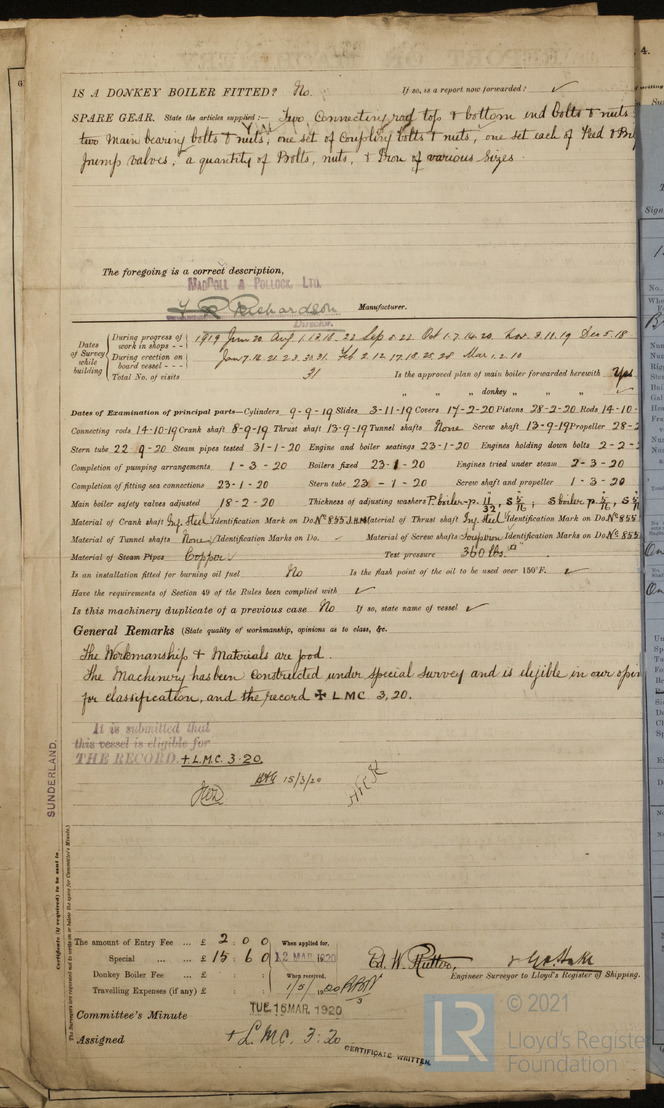 IS A DONKEY BOILER FITTED? No. If so, is a report now forwarded? ✓
SPARE GEAR. State the articles supplied:— Two Connecting rod top & bottom end bolts & nuts
two main bearing bolts & nuts, one set of coupling bolts & nuts, one set each of Feed &
pump valves, a quantity of Bolts, nuts, & Iron of various sizes.
The foregoing is a correct description,
MACCOLL & POLLOCK, LTD.
Richardson Manufacturer.
Director.
Dates of Survey while building
During progress of work in shops - - 1919 Jun 20 Aug 1.13.18.22 Sep 5.22 Oct 1.7.14.20 Nov. 3.11.19 Dec 5.18
During erection on board vessel - - - Jan 7.12.21.23.31 Feb 2.12.17.18.25.28 Mar 1.2.10
Total No. of visits 31 Is the approved plan of main boiler forwarded herewith Yes
" " " donkey " " " ✓
Dates of Examination of principal parts—Cylinders 9-9-19 Slides 3-11-19 Covers 17-2-20 Pistons 28-2-20 Rods 14-10-
Connecting rods 14-10-19 Crank shaft 8-9-19 Thrust shaft 13-9-19 Tunnel shafts None Screw shaft 13-9-19 Propeller 28-2
Stern tube 22 9-20 Steam pipes tested 31-1-20 Engine and boiler seatings 23-1-20 Engines holding down bolts 2-2-2
Completion of pumping arrangements 1-3-20 Boilers fixed 23-1-20 Engines tried under steam 2-3-20
Completion of fitting sea connections 23-1-20 Stern tube 23-1-20 Screw shaft and propeller 1-3-20
Main boiler safety valves adjusted 18-2-20 Thickness of adjusting washers P. boiler-p. 11/32, S 5/16; S boiler p. 5/16, S
Material of Crank shaft Ing. Steel Identification Mark on Do. No 855 Material of Thrust shaft Ing. Steel Identification Mark on Do. No 855
Material of Tunnel shafts None Identification Marks on Do. ✓ Material of Screw shafts Identification Marks on Do. No 855
Material of Steam Pipes Copper ✓ Test pressure 360 lbs.
Is an installation fitted for burning oil fuel No Is the flash point of the oil to be used over 150°F. ✓
Have the requirements of Section 49 of the Rules been complied with ✓
Is this machinery duplicate of a previous case No If so, state name of vessel ✓
General Remarks (State quality of workmanship, opinions as to class, &c.
The Workmanship & Materials are good.
The Machinery has been constructed under special survey and is eligible in our opin
for classification, and the record ✠ L M C 3,20.
It is submitted that
this vessel is eligible for
THE RECORD. + L.M.C. 3.20.
15/3/20
SUNDERLAND.
Certificate (if required) to be sent to
The Surveyors are requested not to write on or below the space for Committee's Minute.
The amount of Entry Fee ... £ 2 : 0 : 0 When applied for,
Special ... ... £ 15 : 6 : 0 12 MAR 1920
Donkey Boiler Fee ... £ : : When received,
Travelling Expenses (if any) £ : : 1/5/1920
Ed. W. Rutter,
Engineer Surveyor to Lloyd's Register of Shipping.
Committee's Minute TUE 16 MAR 1920
Assigned + L.M.C. 3:20
CERTIFICATE WRITTEN.
© 2021
LR Lloyd's Register
Foundation